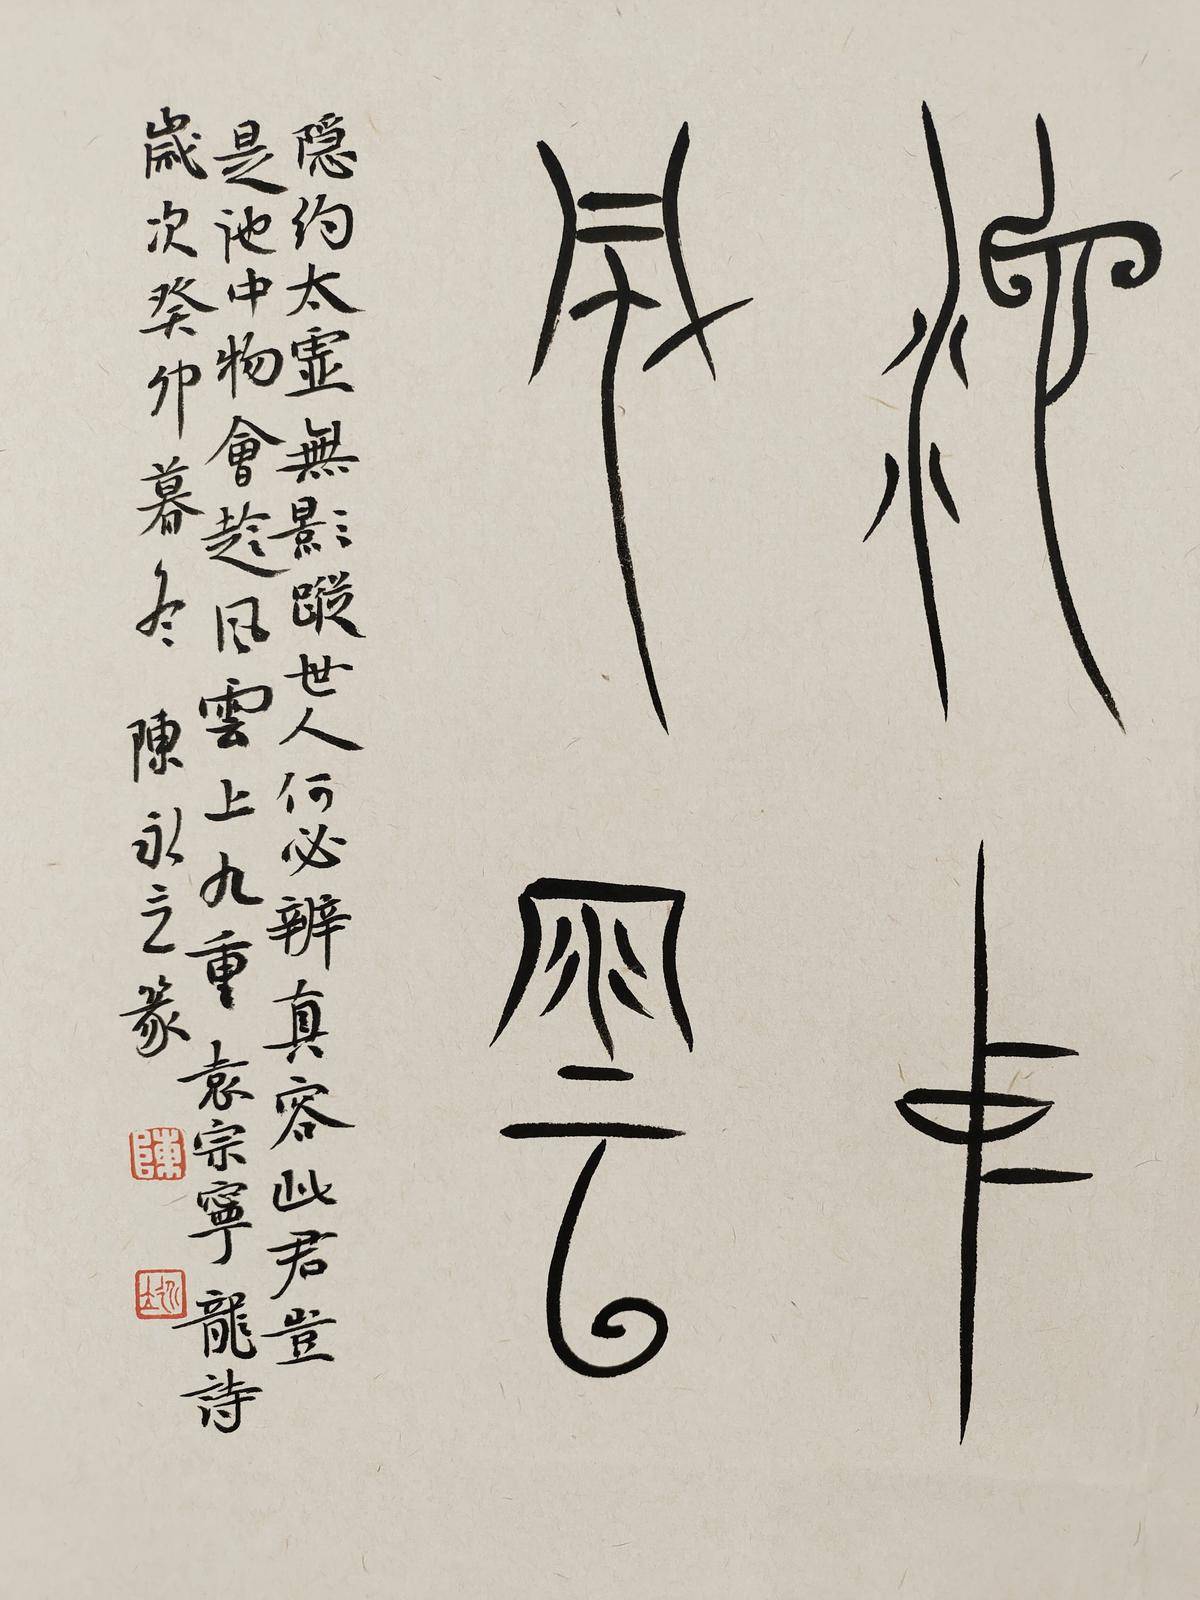 池中
風雲
隱約太虛無影蹤世人何必辨真容此君豈
是池中物會趁風雲上九重 袁宗寧龍詩
歲次癸卯暮冬 陳永之篆
陳